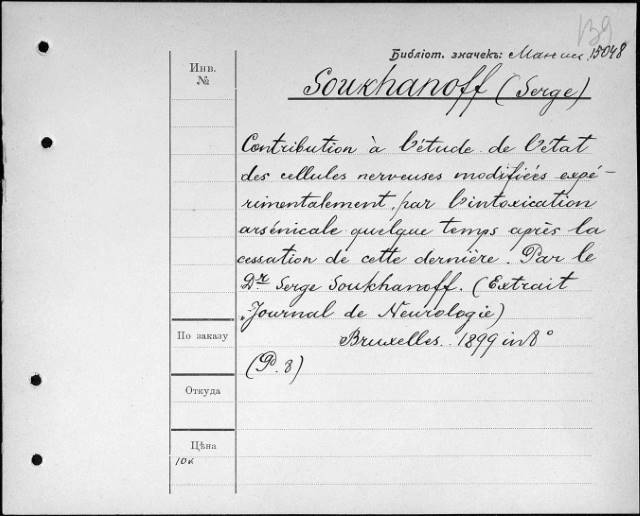 139
Библіот. значекъ: 15048
Инв.
№
Soukhanoff (Serge)
Contribution à l'étude de l'etat
des cellules nerveuses modifiées expé-
rimentalement, par l'intoxication
arsénicale quelque temps après la
cessation de cette dernière. Par le
Dr Serge Soukhanoff. (Extrait
"Journal de Neurologie)
По заказу
Bruxelles. 1899 in 8°
(P. 8)
Откуда
Цѣна
10к